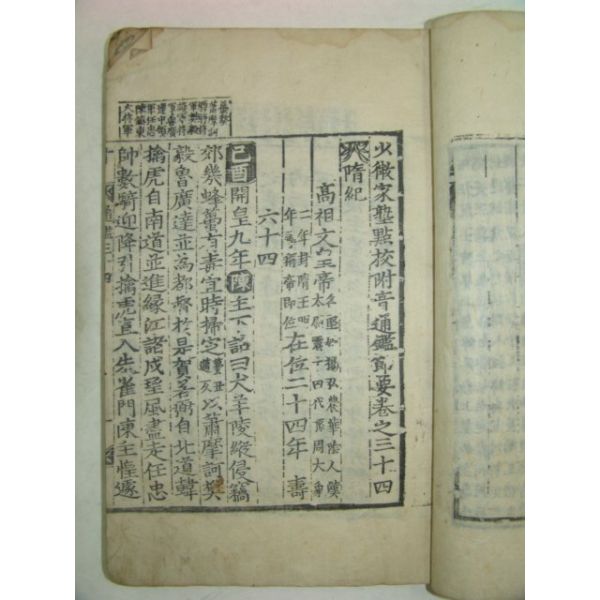 少微家塾點校附音通鑑節要卷之三十四
隋紀
高祖文皇帝 名堅姓楊弘農華陰人漢太尉震十四代孫周大象二年封隋王 在位二十四年 壽
六十四
己酉開皇九年陳主下詔曰犬羊陵縱侵竊
郊畿蜂蠆有毒宜時掃定以蕭摩訶樊
毅魯廣達並為都督於是賀若弼自北道韓
擒虎自南道並進緣江諸戍望風盡走任忠
帥數騎迎降引擒虎直入朱雀門陳主惶遽
通鑑三十四